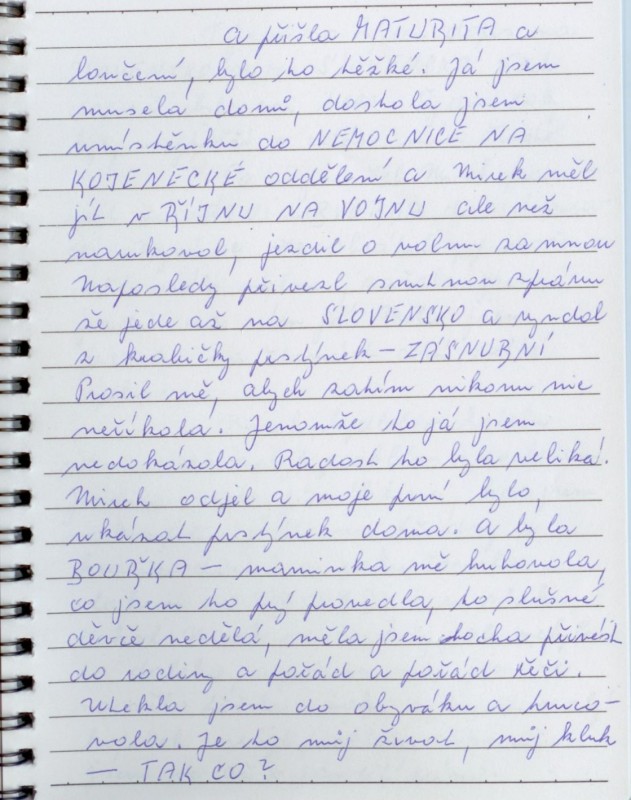 a přišla MATURITA a
loučení, bylo to těžké. Já jsem
musela domů, dostala jsem
umístěnku do NEMOCNICE NA
KOJENECKÉ oddělení a Mirek měl
jít v ŘÍJNU NA VOJNU ale než
narukoval, jezdil o volnu za mnou
Naposledy přivezl smutnou zprávu
že jede až na SLOVENSKO a vyndal
z krabičky prstýnek – ZÁSNUBNÍ
Prosil mě, abych zatím nikomu nic
neříkala. Jenomže to já jsem
nedokázala. Radost to byla veliká.
Mirek odjel a moje první bylo,
ukázat prstýnek doma. a byla
BOUŘKA – maminka mě hubovala,
co jsem to prý provedla, to slušné
děvče nedělá, měla jsem hocha přivést
do rodiny a pořád a pořád řeči.
Utekla jsem do obýváku a trucо-
vala. Je to můj život, můj kluk
– TAK CO?